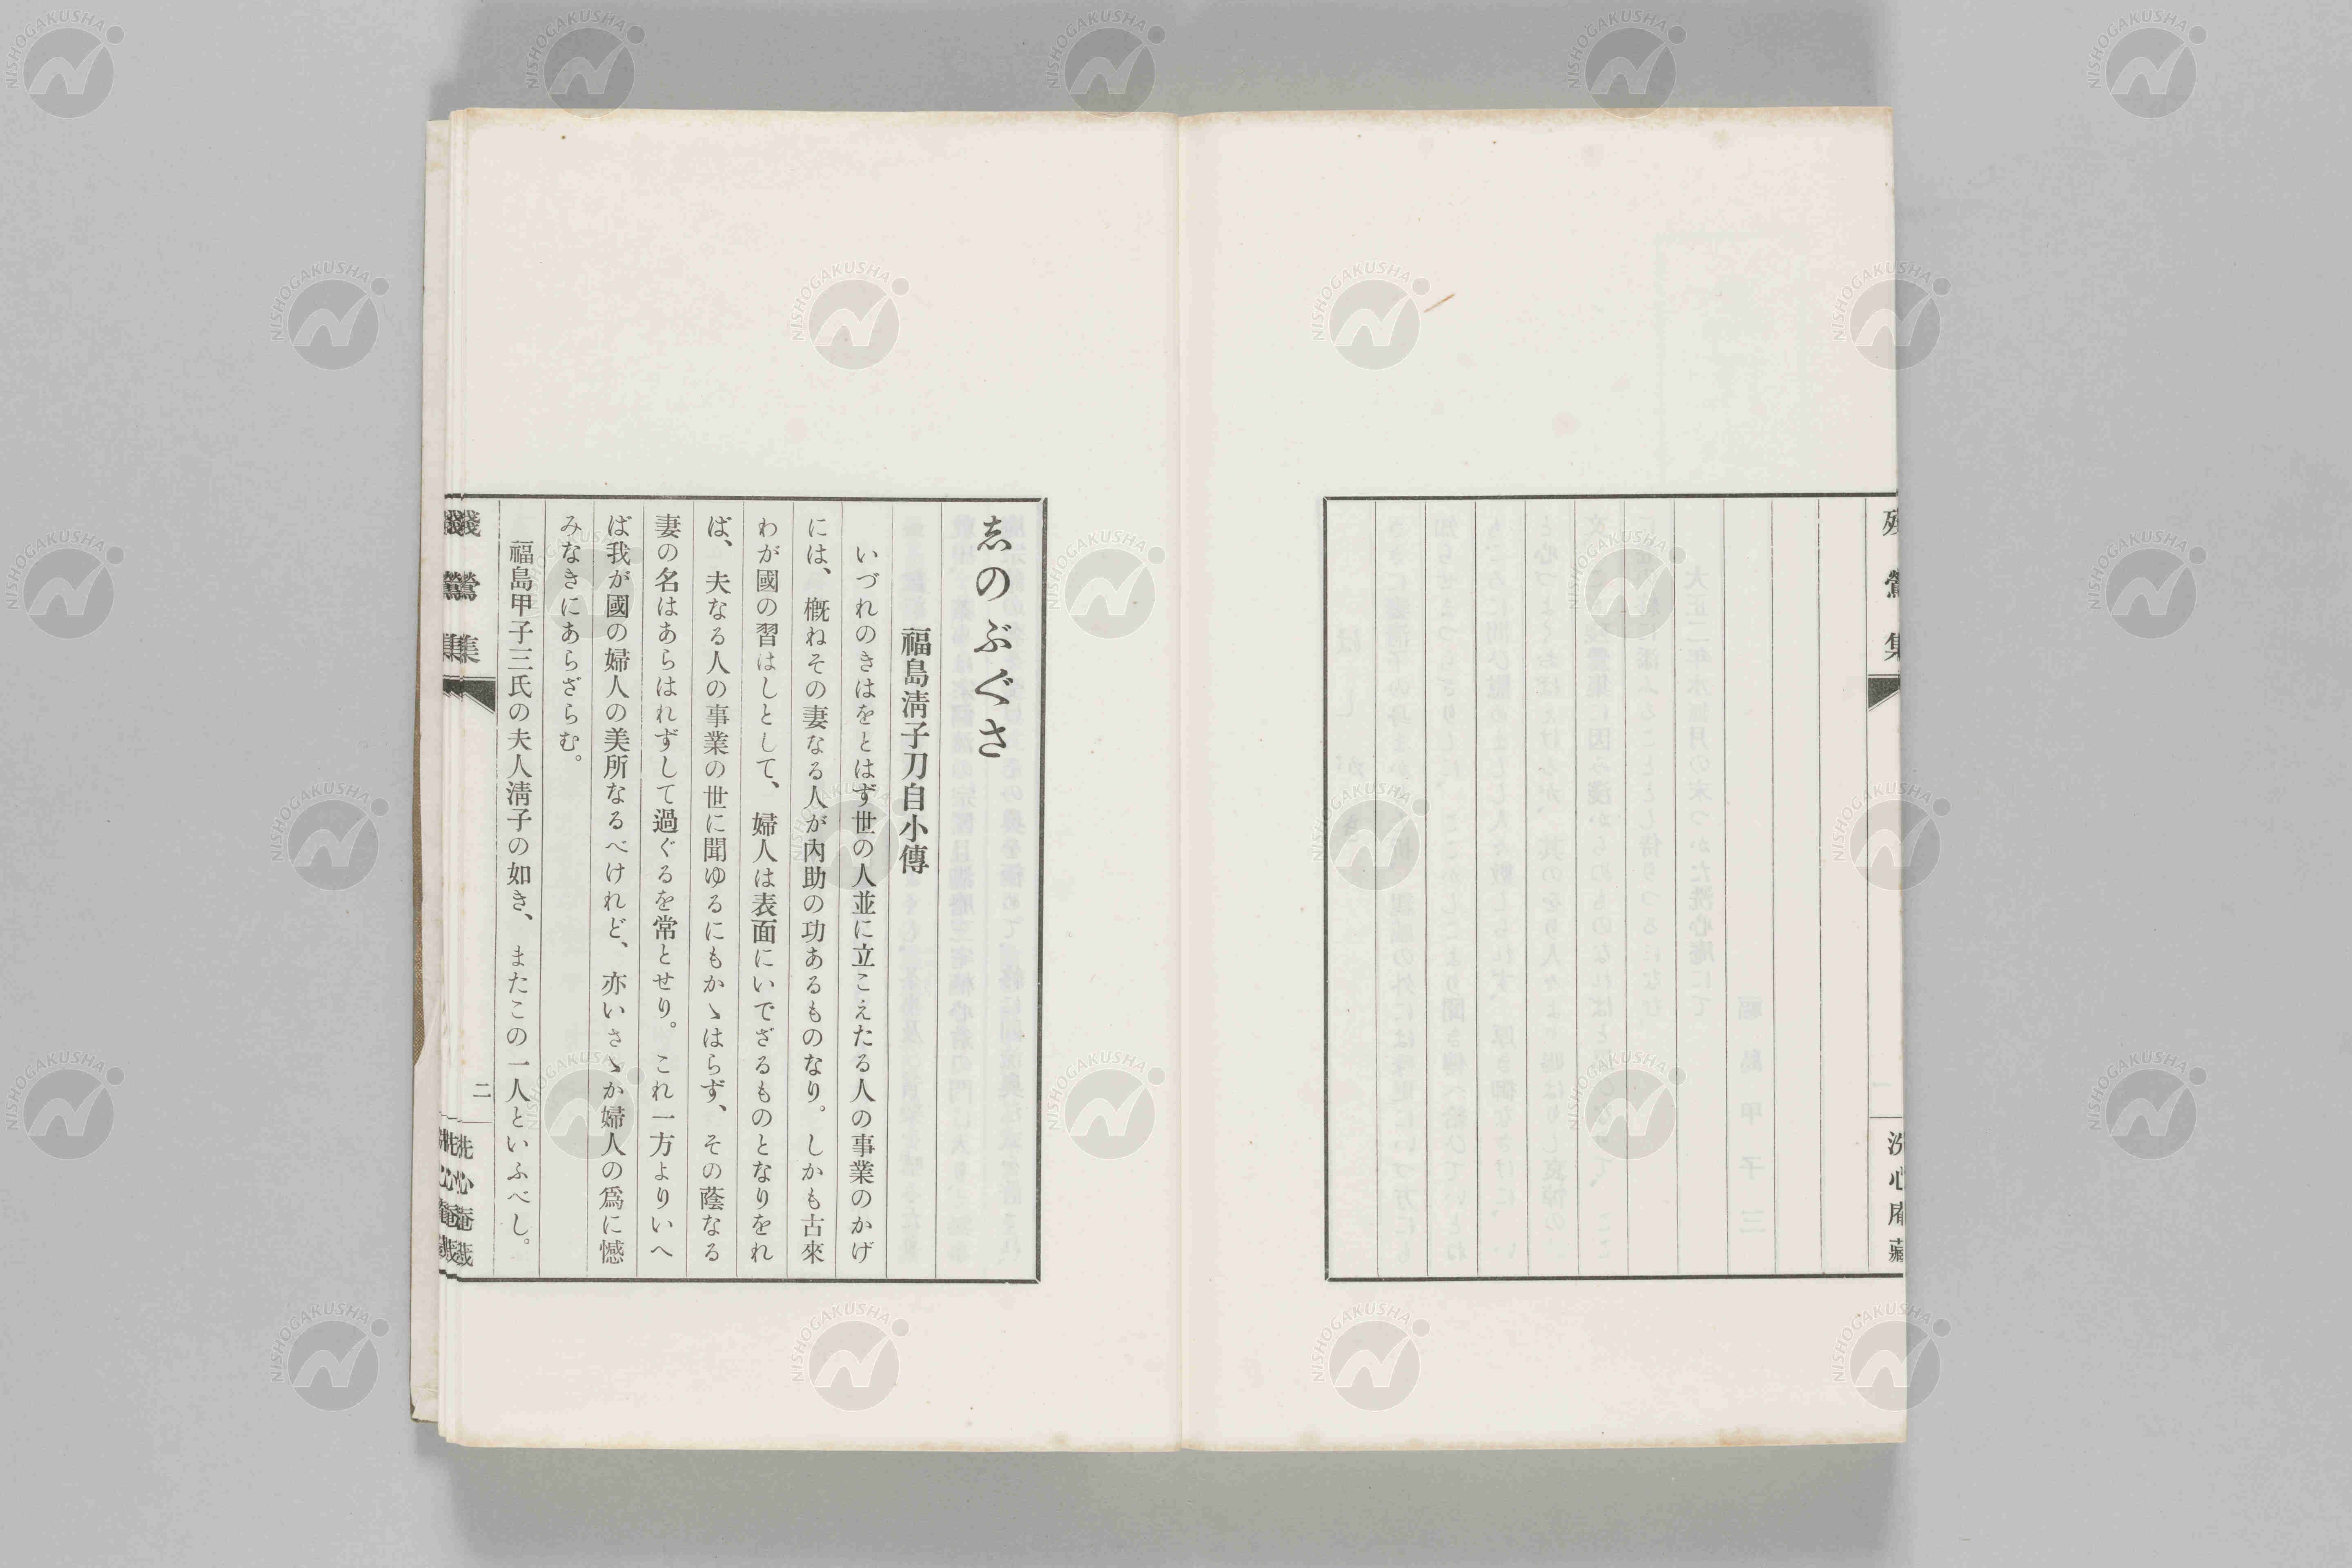 残鶯集
洗心庵藏
志のぶぐさ
福島淸子刀自小傳
いづれのきはをとはず世の人並に立こえたる人の事業のかげ
には、槪ねその妻なる人が內助の功あるものなり。しかも古來
わが國の習はしとして、婦人は表面にいでざるものとなりをれ
ば、夫なる人の事業の世に聞ゆるにもかゝはらず、その蔭なる
妻の名はあらはれずして過ぐるを常とせり。これ一方よりいへ
ば我が國の婦人の美所なるべけれど、亦いさゝか婦人の爲に憾
みなきにあらざらむ。
福島甲子三氏の夫人淸子の如き、またこの一人といふべし。
二
NISHOGAKUSHA